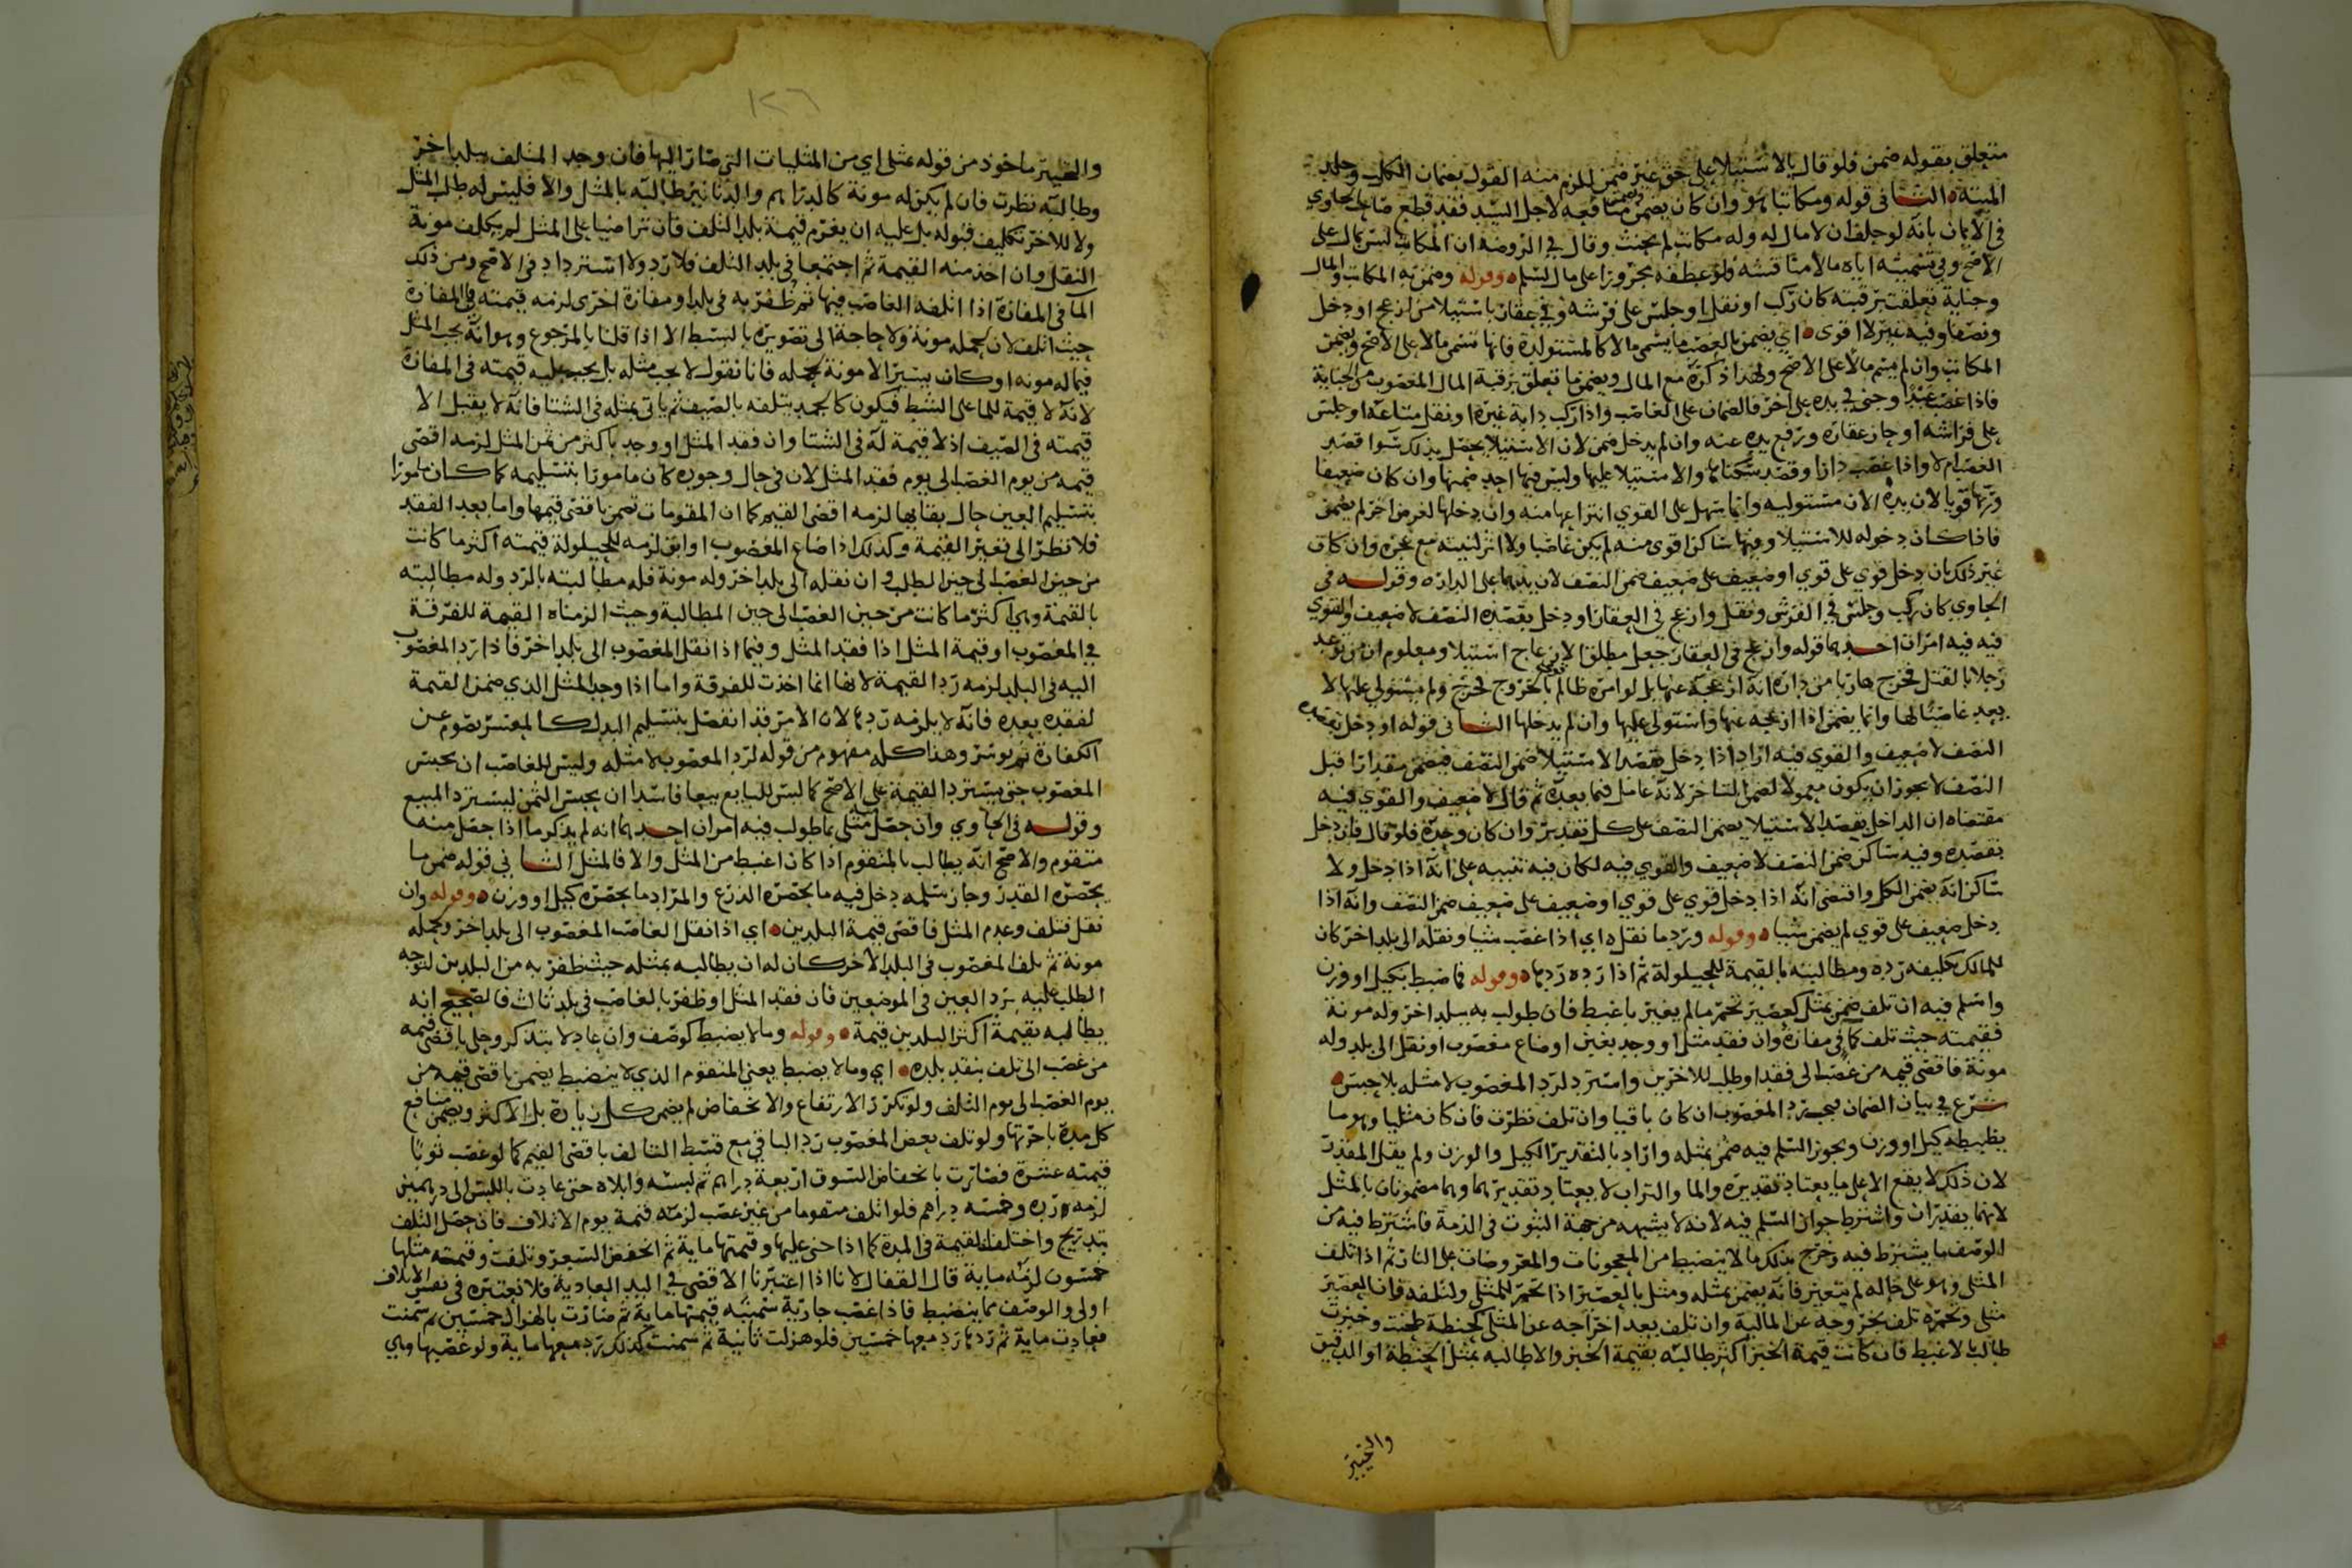 متعلق بقوله ضمن فلو قال بالاستيلا على حق غير ضمن للزم منه القول بضمان الكلب وجلد
الميته الثـاني قوله ومكاتبا هو وان كان يضمن منافعه لاجل السيد فقد قطع صاحب الحاوي
في الايمان بانه لو حلف ان لا مال له وله مكاتب لم يحنث وقال في الروضه ان المكاتب ليس بمال على
الاصح وفي تسميته اياه مالا مناقشه وقوله وضمن به المكاتب والمال
وجناية تعلقت برقبته كان ركب او نقل او جلس على فرشه وفي عقار باستيلا من ازعج او دخل
ونصفا وفيه غير لا اقوى اي يضمن بالغصب ما يسمى مالا كالمستولدة فانها تسمى مالا على الاصح ويضمن
المكاتب وان لم يسم مالا على الاصح ولهذا ذكره مع المال ويضمن ما تعلق برقبة المال المغصوب من الجناية
فاذا غصب عبدا وجنى في يده على اخر فالضمان على الغاصب واذا ركب دابة غيره او نقل متاعه او جلس
على فراشه او حاز عقاره ورفع يده عنه وان لم يدخل ضمن لان الاستيلا يحصل بذلك سوا قصد
الغصب ام لا واذا غصب دارا وقصد سكناها والاستيلا عليها وليس فيها احد ضمنها وان كان ضعيفا
وربها قويا لان يده الان مستوليه وانما يسهل على القوي انتزاعها منه وان دخلها لغرض اخر لم يضمن
فاذا كان دخوله للاستيلا وفيها ساكن اقوى منه لم يكن غاصبا ولا اثر لنيته مع عجزه وان كان
غير ذلك بان دخل قوي على قوي او ضعيف على ضعيف ضمن النصف لان يدهما على الدار وقوله في
الحاوي كان ركب وجلس في الفرش ونقل وازعج في العقار او دخل بقصده النصف لا ضعيف والقوي
فيه فيه امران احدهما قوله وازعج في العقار جعل مطلق الازعاج استيلا ومعلوم ان من توعد
رجلا بالقتل فخرج هاربا من داره انه ازعجه عنها بل لو امره ظالم بالخروج فخرج ولم يستولي عليها لا
يعد غاصبا لها وانما يضمن اذا ازعجه عنها واستولى عليها وان لم يدخلها الثـاني قوله او دخل بقصده
النصف لا ضعيف والقوي فيه اراد اذا دخل بقصد الاستيلا ضمن النصف فيضمن مقدرا قبل
النصف لا يجوز ان يكون معمولا لضمن المتاخر لانه عامل فيما بعده ثم قال لا ضعيف والقوي فيه
مقتضاه ان الداخل بقصد الاستيلا يضمن النصف على كل تقدير وان كان وحده فلو قال فان دخل
بقصده وفيه ساكن ضمن النصف لا ضعيف والقوي فيه لكان فيه تنبيه على انه اذا دخل ولا
ساكن انه يضمن الكل واقتضى انه اذا دخل قوي على قوي او ضعيف على ضعيف ضمن النصف وانه اذا
دخل ضعيف على قوي لم يضمن شيا وقوله ورد ما نقل اي اذا غصب شيا ونقله الى بلد اخر كان
للمالك تكليفه رده ومطالبته بالقيمة للحيلولة ثم اذا رده ردها وقوله فما ضبط بكيل او وزن
واسلم فيه ان تلف ضمن بمثل كعصير تخمر ما لم يغير باغبط فان طولب به ببلد اخر وله مونة
فقيمته حيث تلف كما في مفازه وان فقد مثل او وجد بغبن او ضاع مغصوب او نقل الى بلد وله
مونة فاقصى قيمه من غصب الى فقد او طلب للاخرين واسترد لرد المغصوب لا مثله بلا حبس
شرع في بيان الضمان فيجب رد المغصوب ان كان باقيا وان تلف نظرت فان كان مثليا وهو ما
يظبطه كيل او وزن ويجوز السلم فيه ضمن بمثله واراد بالتقدير الكيل والوزن ولم يقل المقدرت
لان ذلك لا يقع الا على ما يعتاد تقديره والما والتراب لا يعتاد تقديرهما وهما مضمونان بالمثل
لانهما يقدران واشترط جواز السلم فيه لانه لا يشبهه من جهة الثبوت في الذمة فاشترط فيه من
الوصف ما يشترط فيه وخرج بذلك ما لا ينضبط من المعجونات والمعروضات على النار ثم اذا تلف
المثلي وهو على حاله لم يتغير فانه يضمن بمثله ومثل بالعصير اذا تخمر للمثلي ولتلفه فان العصير
مثلي وتخمره تلف بخروجه عن المالية وان تلف بعد اخراجه عن المثلي كحنطة طحنت وخبزت
طالب بالاغبط فان كانت قيمة الخبز اكثر طالبه بقيمة الخبز والا طالبه بمثل الحنطة او الدقيق
والتخيير
١٢٦
والتخيير ماخوذ من قوله بمثلي اي من المثليات التي صار اليها فان وجد المتلف ببلد اخر
وطالبه نظرت فان لم يكن له مونة كالدراهم والدنانير طالبه بالمثل والا فليس له طلب المثل
ولا للاخر تكليف قبوله بل عليه ان يغرم قيمة بلد التلف فان تراضيا على المثل لم يتكلف مونة
النقل وان اخذ منه القيمة ثم اجتمعا في بلد التلف فلا رد ولا استرداد في الاصح ومن ذلك
الما في المفازة اذا اتلفه الغاصب فيها ثم ظفر به في بلد او مفازة اخرى لزمه قيمته في المفازة
حيث اتلف لان لحمله مونة ولا حاجة الى تصويره بالبسط الا اذا قلنا بالمرجوع وهو انه يجب المثل
فيما له مونه او كان يسيرا لا مونة لحمله فانا نقول لا يجب مثله بل يجب عليه قيمته في المفازة
لانه لا قيمة للما على الشط فيكون كالجمد يتلفه بالصيف ثم ياتي بمثله في الشتا فانه لا يقبل الا
قيمته في الصيف اذ لا قيمة له في الشتا وان فقد المثل او وجد باكثر من ثمن المثل لزمه اقصى
قيمه من يوم الغصب الى يوم فقد المثل لان في حال وجوده كان مامورا بتسليمه كما كان مامورا
بتسليم العين حال بقايها لزمه اقصى القيم كما ان المقومات تضمن باقصى قيمها واما بعد الفقد
فلا نظر الى تغير القيمة وكذلك اذا ضاع المغصوب او ابق لزمه للحيلولة قيمته اكثر ما كانت
من حين الغصب الى حين الطلب وان نقله الى بلد اخر وله مونة فله مطالبته بالرد وله مطالبته
بالقيمة وهي اكثر ما كانت من حين الغصب الى حين المطالبة وحيث الزمناه القيمة للفرقة
في المغصوب او قيمة المثل اذا فقد المثل وفيما اذا نقل المغصوب الى بلد اخر فاذا رد المغصوب
اليه في البلد لزمه رد القيمة لانها انما اخذت للفرقة واما اذا وجد المثل الذي ضمن القيمة
لفقده بعده فانه لا يلزمه ردها لان الامر قد انفصل بتسليم البدل كالمعسر يصوم عن
الكفارة ثم يوسر وهذا كله مفهوم من قوله لرد المغصوب لا مثله وليس للغاصب ان يحبس
المغصوب حتى يسترد القيمة على الاصح كما ليس للبايع بيعا فاسدا ان يحبس الثمن ليسترد المبيع
وقوله في الحاوي وان حصل مثلي بما طولب فيه امران احدهما انه لم يذكر ما اذا حصل منه
متقوم والاصح انه يطالب بالمتقوم اذا كان اغبط من المثل والا فالمثل الثـاني قوله ضمن ما
يحصره القدر وجاز سلمه دخل فيه ما يحصره الذرع والمراد ما يحصره كيل او وزن وقوله وان
نقل فتلف وعدم المثل فاقصى قيمة البلدين اي اذا نقل الغاصب المغصوب الى بلد اخر ولحمله
مونة ثم تلف المغصوب في البلد الاخر كان له ان يطالبه بمثله حيث ظفر به من البلدين لتوجه
الطلب عليه برد العين في الموضعين فان فقد المثل او ظفر بالغاصب في بلد ثالث فالصحيح انه
يطالبه بقيمة اكثر البلدين قيمة وقوله وما لا يضبط كوصف وان عاد لا بتذكر وحلي باقصى قيمه
من غصب الى تلف بنقد بلده اي وما لا يضبط يعني المتقوم الذي لا ينضبط يضمن باقصى قيمه من
يوم الغصب الى يوم التلف ولو تكرر الارتفاع والانخفاض لم يضمن كل زيادة بل الاكثر ويضمن منافع
كل مدة باجرتها ولو تلف بعض المغصوب رد الباقي مع قسط التالف باقصى القيم كما لو غصب ثوبا
قيمته عشرة فصارت بانخفاض السوق اربعة دراهم ثم لبسه وابلاه حتى عادت باللبس الى درهمين
لزمه رده وخمسه دراهم فلو اتلف متقوما من غير غصب لزمته قيمة يوم الاتلاف فان حصل التلف
بتدريج واختلفت القيمة في المدة كما اذا جنى عليها وقيمتها ماية ثم انخفض السعر وتلفت وقيمته مثلها
خمسون لزمه ماية قال القفال لانا اذا اعتبرنا الاقصى في اليد العادية فلان نعتبره في نفس الاتلاف
اولى والوصف مما ينضبط فاذا غصب جارية سمينه قيمتها ماية ثم صارت بالهزال خمسين ثم سمنت
فعادت ماية ثم ردها رد معها خمسين فلو هزلت ثانية ثم سمنت كذلك رد معها ماية ولو غصبها وهي